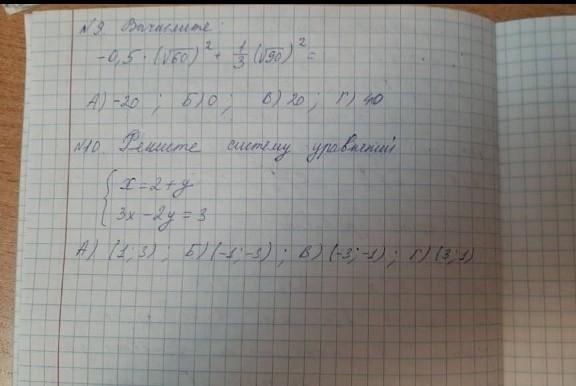 №9 Вычислите:
-0,5 · (√60)² + 1/3 (√90)² =
А) -20 ; Б) 0 ; В) 20 ; Г) 40
№10. Решите систему уравнений
{ x = 2 + y
3x - 2y = 3
А) (1; 3) ; Б) (-1; -3) ; В) (-3; -1) ; Г) (3; 1)